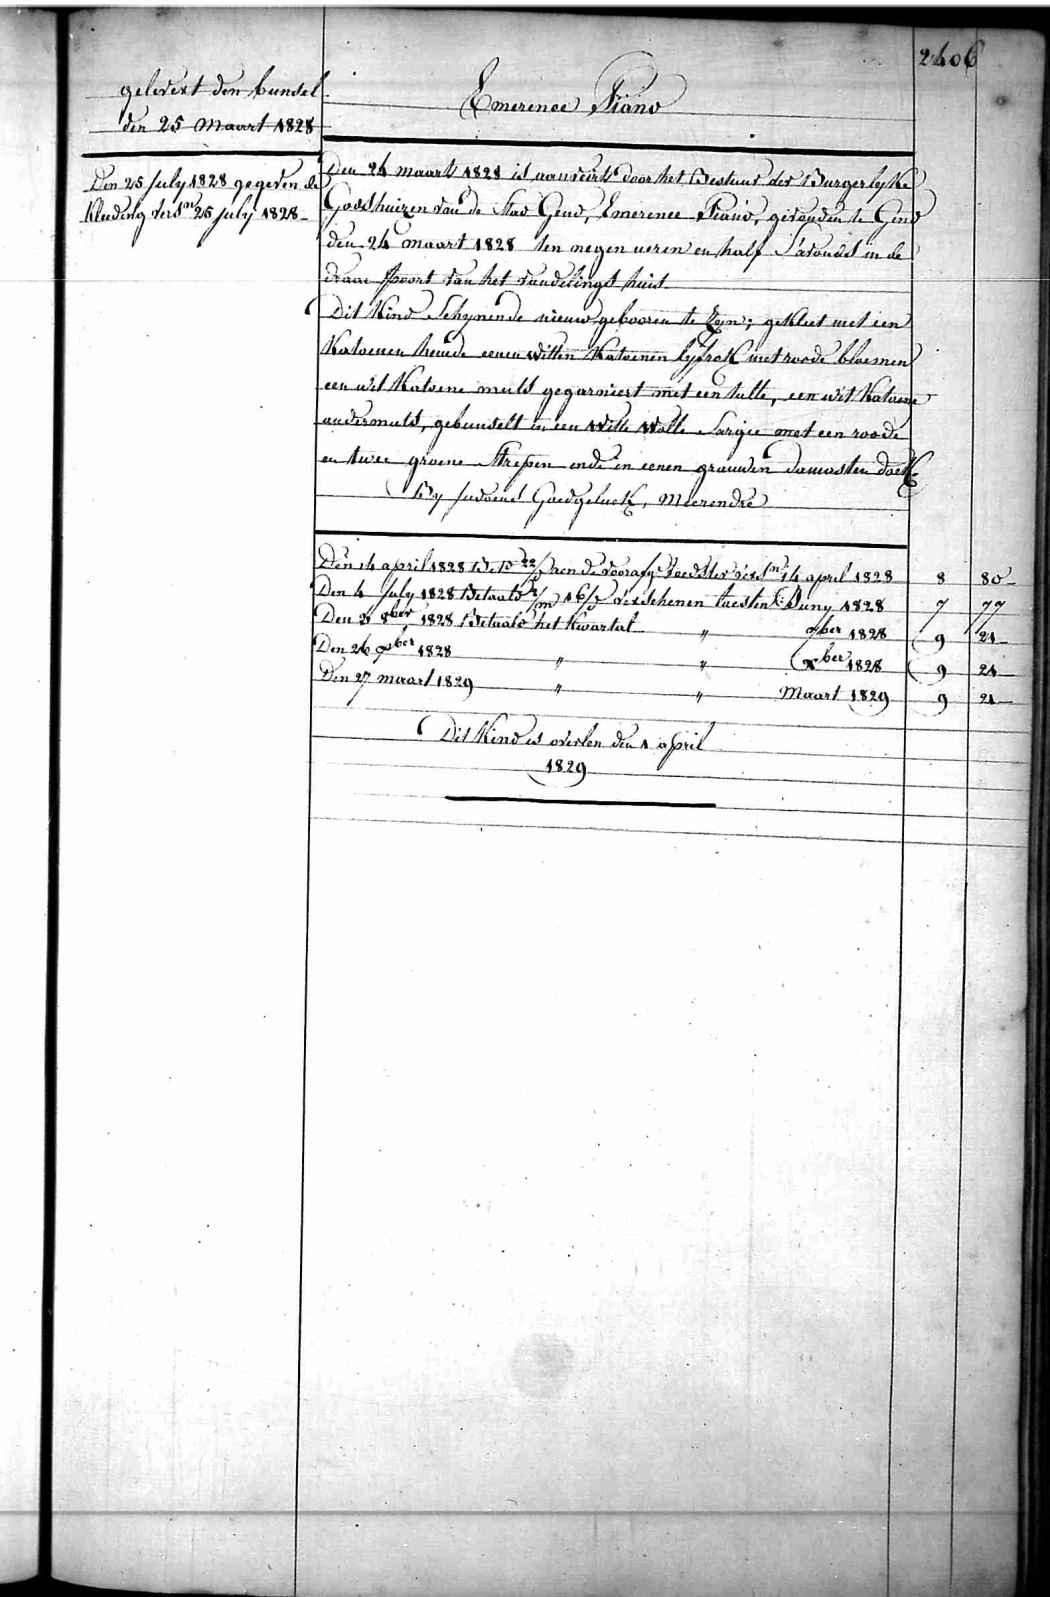 2406
gelevert den bunsel
den 25 maart 1828
Emerence Piano
Den 25 july 1828 gegeven de
kleeding versn 25 july 1828
Den 24 maart 1828 is aanveirt door het Bestuur der Burgerlyke
Godshuizen van de Stad Gend, Emerence Piano, gevonden te Gend
den 24 maart 1828 ten negen ueren en half S'avonds in de
draai poort van het vondelings huis
Dit Kind Schynende nieuw gebooren te Zyn; gekleet met een
Katoenen hemde eenen witten Katoenen lyfrok met roode bloemen
een wit Katoene muts gegarniert met een tulle, een wit Katoene
ondermuts, gebunselt in een witte wolle Sargie met een roode
en twee groene Strepen ende in eenen grauwen damasten doek
By Goedgeluck, Meerendre
Den 14 april 1828 aen de voorafge voedster versn 14 april 1828 8 80
Den 4 July 1828 Betaald 2/m 16/d verschenen tuesten Juny 1828 7 77
Den 3 8ber 1828 Betaald het kwartal " 7ber 1828 9 21
Den 26 xber 1828 " " xber 1828 9 21
Den 27 maart 1829 " " Maart 1829 9 21
Dit Kind is overlen den 1 april
1829